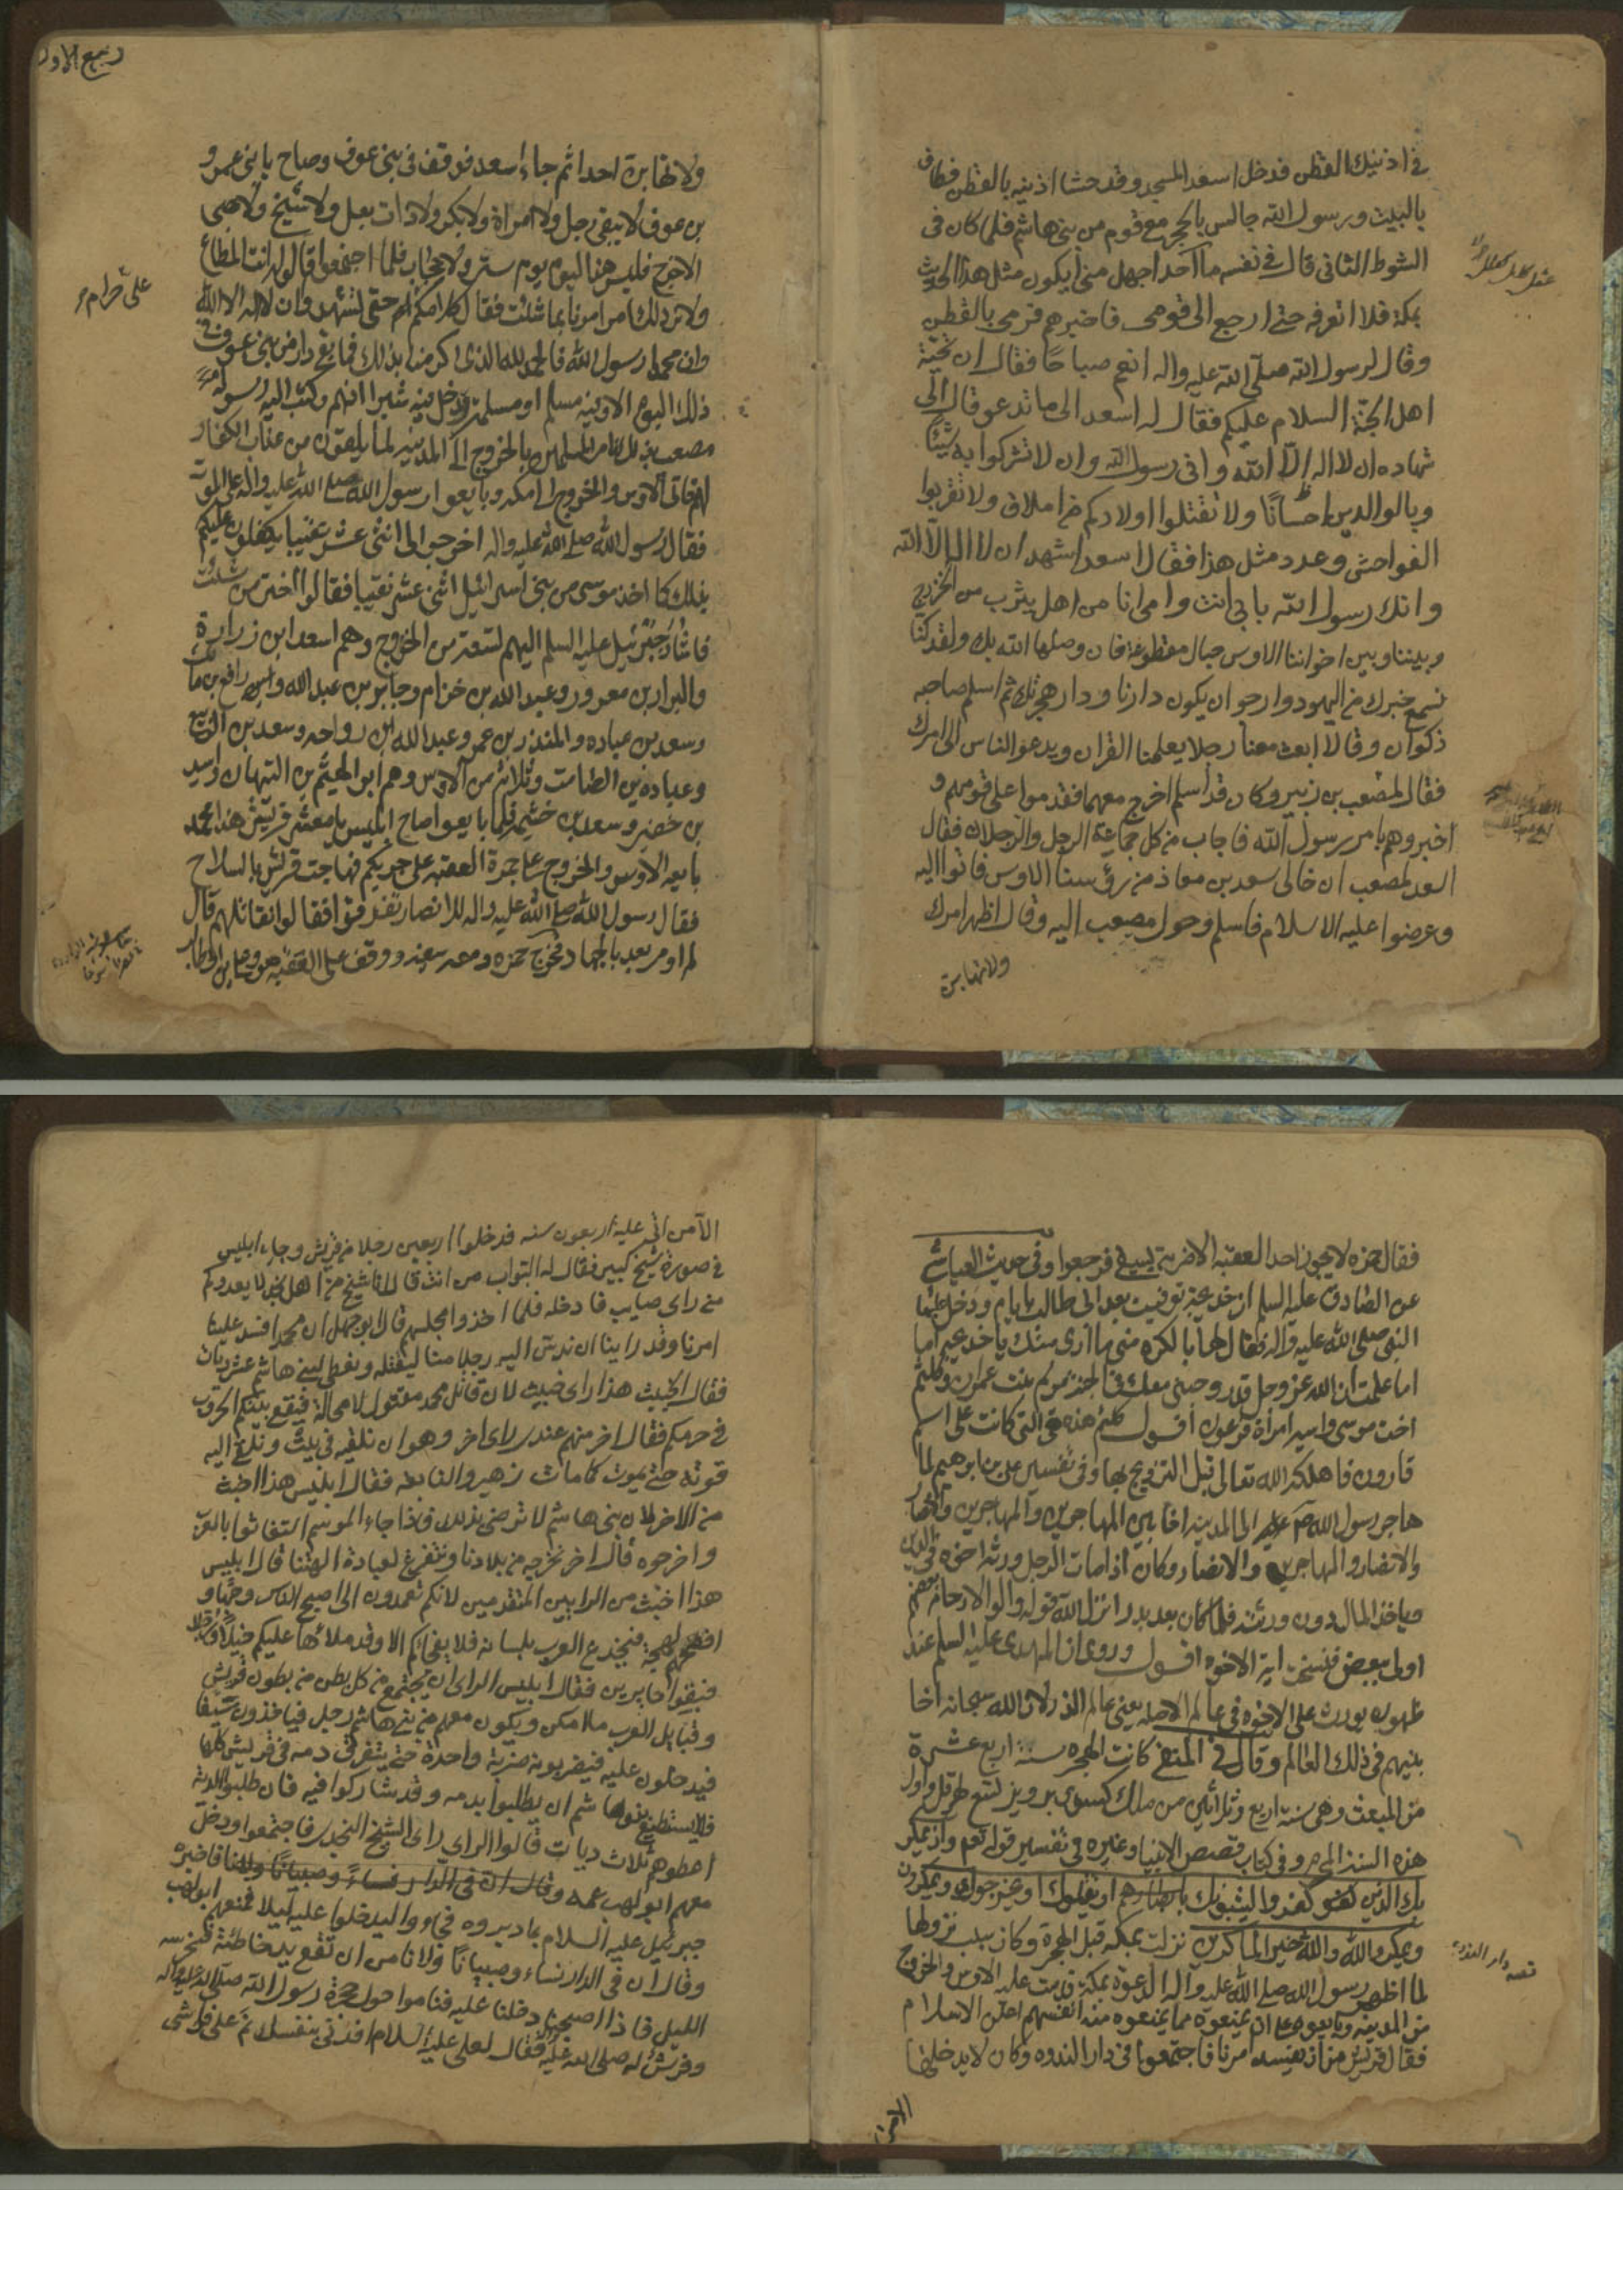 في اذنيك القطن فدخل اسعد المسجد وقد حشا اذنيه بالقطن فطاف
بالبيت ورسول الله جالس بالحجر مع قوم من بني هاشم فلما كان في
الشوط الثاني قال في نفسه ما احد اجهل مني ايكون مثل هذا الحديث
بمكة فلا اتعرفه حتى ارجع الى قومي فاخبرهم فرمى بالقطن
وقال لرسول الله صلى الله عليه واله انعم صباحا فقال ان تحية
اهل الجنة السلام عليكم فقال له اسعد الى ما تدعو قال الى
شهاده ان لا اله الا الله واني رسول الله وان لا تشركوا به شيئا
وبالوالدين احسانا ولا تقتلوا اولادكم من املاق ولا تقربوا
الفواحش وعدد مثل هذا فقال اسعد اشهد ان لا اله الا الله
وانك رسول الله بابي انت وامي انا من اهل يثرب من الخزرج
وبيننا وبين اخواننا الاوس حبال مقطوعة فان وصلها الله بك ولقد كنا
نسمع خبرك من اليهود وارجو ان يكون دارنا ودار هجرتك ثم اسلم صاحبه
ذكوان وقالا ابعث معنا رجلا يعلمنا القران ويدعو الناس الى امرك
فقال لمصعب بن زبير وكان قد اسلم اخرج معهما فقدموا على قومهم و
اخبروهم بامر رسول الله فاجاب من كل جماعة الرجل والرجلان فقال
اسعد لمصعب ان خالي سعد بن معاذ من رؤسنا الاوس فاتوا اليه
وعرضوا عليه الاسلام فاسلم وحول مصعب اليه وقال اظهر امرك
ولا تهابن
ربيع الاول
ولا تهابن احدا ثم جاء اسعد فوقف في بني عوف وصاح يا بني عمرو
بن عوف لا يبقى رجل ولا امراة ولا بكر ولا ذات بعل ولا شيخ ولا صبي
الا خرج فليس هذا اليوم يوم ستر ولا حجاب فلما اجتمعوا قالوا انت المطاع
ولا نرد لك امرا مرنا بما شئت فقال كلامكم حرام حتى تشهدوا ان لا اله الا الله
وان محمدا رسول الله فالحمد لله الذي اكرمنا بذلك فما بقي دار من بني عوف في
ذلك اليوم الا وفيه مسلم او مسلمة
على حرام
فقال رسول الله صلى الله عليه واله اخرجوا الي اثني عشر نقيبا يكفلون عليكم
بذلك كما اخذ موسى من بني اسرائيل اثني عشر نقيبا فقالوا اختر من شئت
فاشار جبرئيل عليه السلم اليهم لتسعة من الخزرج وهم اسعد ابن زرارة
والبراء بن معرور وعبد الله بن خزام وجابر بن عبد الله ورافع بن مالك
وسعد بن عباده والمنذر بن عمرو وعبد الله ابن رواحه وسعد بن الربيع
وعباده بن الصامت وثلاثة من الاوس وهم ابو الهيثم بن التيهان واسيد
بن حضير وسعد بن خثيم فلما بايعوا صاح ابليس يا معشر قريش هذا محمد
بايعه الاوس والخزرج على جمرة العقبه على حربكم فهاجت قريش بالسلاح
فقال رسول الله صلى الله عليه واله للانصار تفرقوا فقالوا نقاتلهم قال
لم اومر بعد بالجهاد فخرج حمزه ومعه سيفه ووقف على العقبه هو وعلي بن ابيطالب
فقال حمزه لا يجوز احد العقبه الا ضربته بسيفي فرجعوا وفي حديث العياشي
عن الصادق عليه السلم ان خديجة توفيت بعد ابي طالب بايام ودخل عليها
النبي صلى الله عليه واله فقال لها بالكره مني ما ارى منك يا خديجه اما
اما علمت ان الله عز وجل قد زوجني معك في الجنة مريم بنت عمران وكلثم
اخت موسى واسيه امراة فرعون اقول كلثم هذه هي التي كانت على اسم
قارون فاهلكه الله تعالى قبل التزويج بها وفي تفسير علي بن ابرهيم لما
هاجر رسول الله الى المدينه اخا بين المهاجرين والمهاجرين والانصار
والانصار والمهاجرين والانصار وكان اذا مات الرجل ورثه اخوه في الدين
وياخذ المال دون ورثته فلما كان بعد بدر انزل الله قوله واولوا الارحام بعضهم
اولى ببعض فنسخت اية الاخوه اقول وروى ان المهدي عليه السلم عند
ظهوره يورث على الاخوه في عالم الاصله يعني عالم الذر لان الله سبحانه اخا
بينهم في ذلك العالم وقال في المنتقى كانت الهجره سنة اربع عشرة
من المبعث وهي سنة اربع وثلاثين من ملك كسرى برويز لتسع لهرقل واول
هذه السنة المحرم وفي كتاب قصص الانبيا وغيره في تفسير قوله تعالى واذ يمكر
بك الذين كفروا ليثبتوك او يقتلوك او يخرجوك ويمكرون
ويمكر الله والله خير الماكرين نزلت بمكه قبل الهجرة وكان سبب نزولها
لما اظهر رسول الله صلى الله عليه واله الدعوة بمكة قدمت عليه الاوس والخزرج
من المدينه وبايعوه على ان يمنعوه مما يمنعوه منه انفسهم اعلن الاسلام
فقال قريش من ان يفسد امرنا فاجتمعوا في دار الندوه وكان لا يدخلها
قصه دار الندوة
الا من
الا من اتى عليه اربعون سنه فدخلوا اربعين رجلا من قريش وجاء ابليس
في صورة شيخ كبير فقال له البواب من انت قال انا شيخ من اهل نجد لا يعدوكم
مني راي صايب فادخله فلما اخذوا مجلسهم قال ابو جهل ان محمدا افسد علينا
امرنا وقد راينا ان ندس اليه رجلا منا ليقتله ونعطي لبني هاشم عشر ديات
فقال الخبيث هذا راي خبيث لان قاتل محمد مقتول لا محالة فيقع بينكم الحروب
في حرمكم فقال اخر منهم عندي راي اخر وهو ان نلقيه في بيت ونلقي اليه
قوته حتى يموت كما مات زهير والنابغه فقال ابليس هذا اخبث
من الاخر لان بني هاشم لا ترضى بذلك فاذا جاء الموسم استغاثوا بالعرب
واخرجوه قال اخر نخرجه من بلادنا ونتفرغ لعبادة الهتنا قال ابليس
هذا اخبث من الرايين المتقدمين لانكم تعمدون الى اصبح الناس وجها و
افصحهم لهجة فيخدع العرب بلسانه فلا يفجاكم الا وقد ملاها عليكم خيلا ورجلا
فبقوا حايرين فقال ابليس الراي ان يجتمع من كل بطن من بطون قريش
وقبايل العرب ما امكن ويكون معهم من بني هاشم رجل فياخذون سيفا
فيدخلون عليه فيضربونه ضربة واحدة حتى يتفرق دمه في قريش كلها
فلا يستطيع بنو هاشم ان يطلبوا بدمه وقد شاركوا فيه فان طلبوا الدية
اعطوهم ثلاث ديات قالوا الراي راي الشيخ النجدي فاجتمعوا ودخل
معهم ابو لهب عمه وقال ان في الدار نساء وصبيانا فاخبره
جبرئيل عليه السلام بما دبروه فجاءوا ليدخلوا عليه ليلا فمنعهم ابو لهب
وقال ان في الدار نساء وصبيانا ولا نامن ان تقع يد خاطئة فنحرسه
الليل فاذا اصبحنا دخلنا عليه فناموا حول حجرة رسول الله صلى الله عليه واله
وفرش له صلى الله عليه فقال لعلي عليه السلام افدني بنفسك نم على فراشي